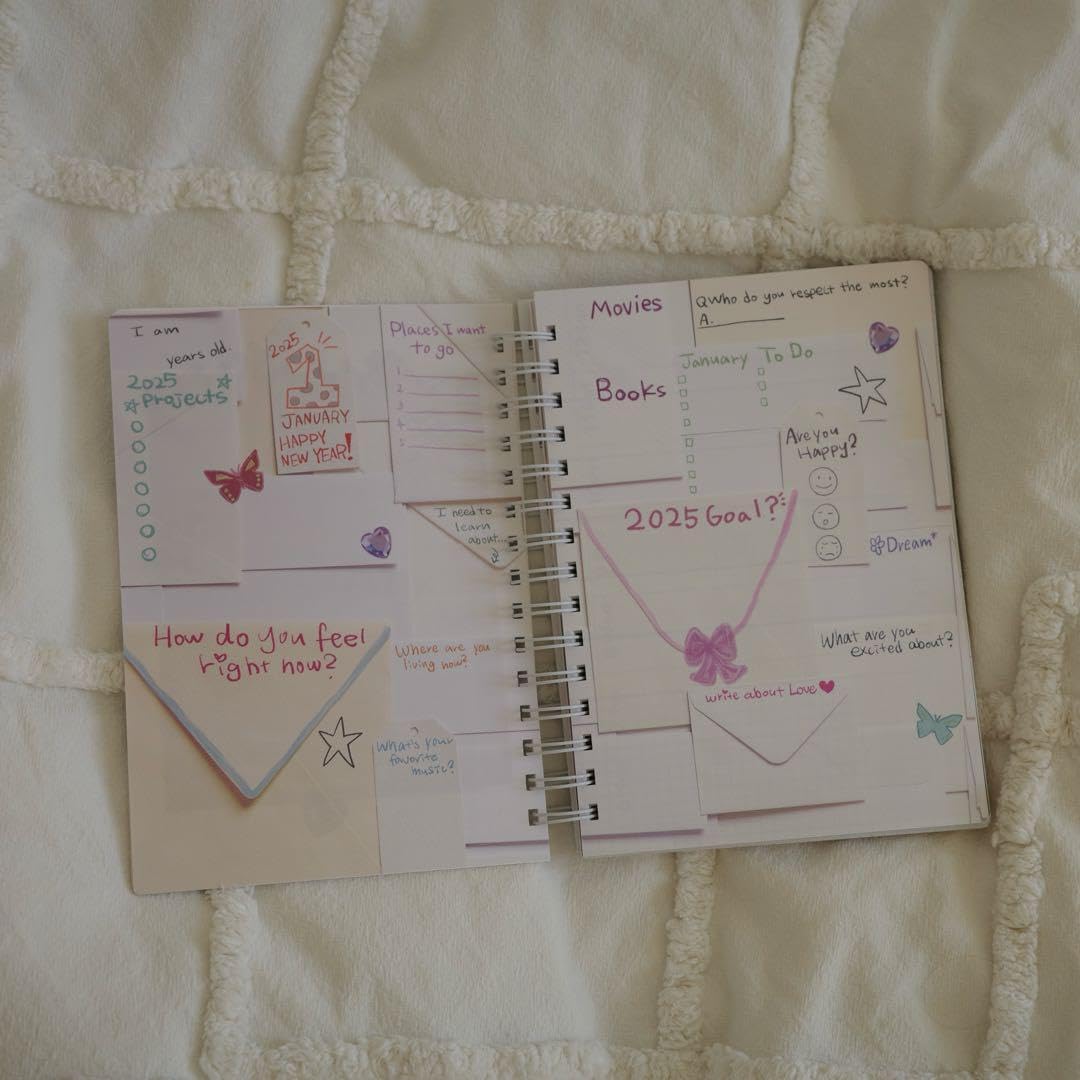 I am
years old.
2025
Projects
2025
1
JANUARY
HAPPY
NEW YEAR!
Places I want
to go
1
2
3
4
5
I need to
learn
about...
How do you feel
right now?
Where are you
living now?
What's your
favorite
music?
Movies
Books
Q Who do you respect the most?
A.
January To Do
Are you
Happy?
2025 Goal?
Dream
What are you
excited about?
write about Love